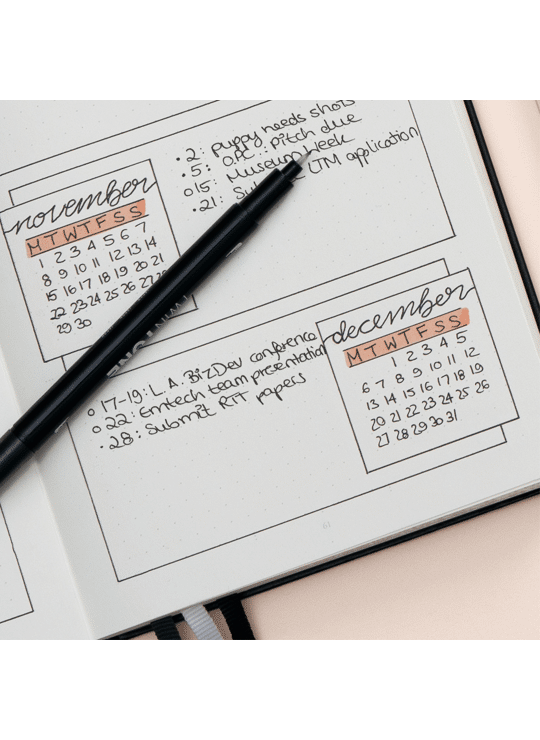 • 2: puppy needs shots
• 5: OAC: Pitch due
o 15: Museum Week
• 21: UTM application
november
M T W T F S S
1 2 3 4 5 6 7
8 9 10 11 12 13 14
15 16 17 18 19 20 21
22 23 24 25 26 27 28
29 30
december
M T W T F S S
1 2 3 4 5
6 7 8 9 10 11 12
13 14 15 16 17 18 19
20 21 22 23 24 25 26
27 28 29 30 31
o 17-19: L.A. BizDev conference
o 22: Emtech team presentation
• 28: Submit RIT papers